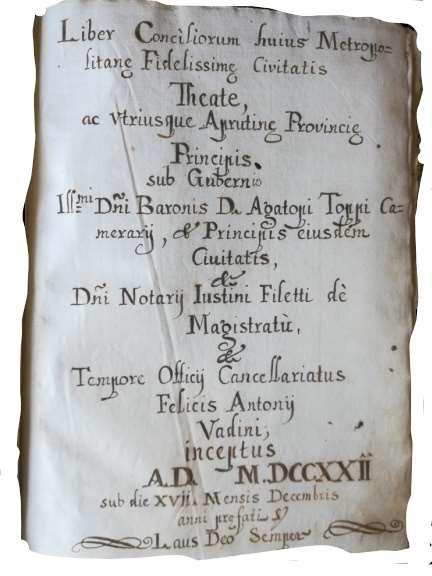 Liber Conciliorum huius Metropo=
litanę Fidelissimę Civitatis
Theate,
ac Vtriusque Aprutinę Provincię
Principis,
sub Gubernio
Ill:mi Dñi Baronis D. Agatopi Toppi Ca=
merarij, & Principis eiusdem
Ciuitatis,
&
Dñi Notarij Iustini Filetti dè
Magistratù,
&
Tempore Officij Cancellariatus
Felicis Antonij
Vadini,
inceptus
A.D. M.DCCXXII
sub die XVII. Mensis Decembris
anni prefati
Laus Deo Semper